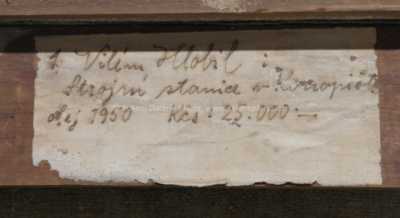 1. Vilém Hlobil :
Strojní stanice v Konopišti
Máj 1950 Kčs : 25.000.—